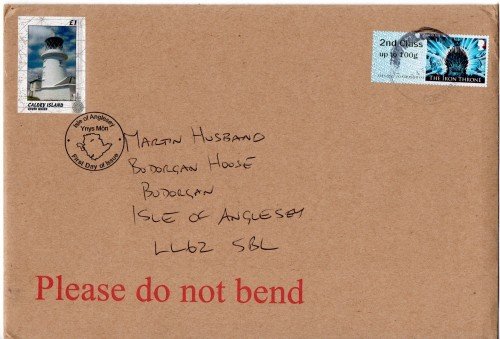 £1
CALDEY ISLAND
2nd Class
up to 100g
THE IRON THRONE
Isle of Anglesey
Ynys Môn
First Day of Issue
MARTIN HUSBAND
BODORGAN HOUSE
BODORGAN
ISLE OF ANGLESEY
LL62 5BL
Please do not bend